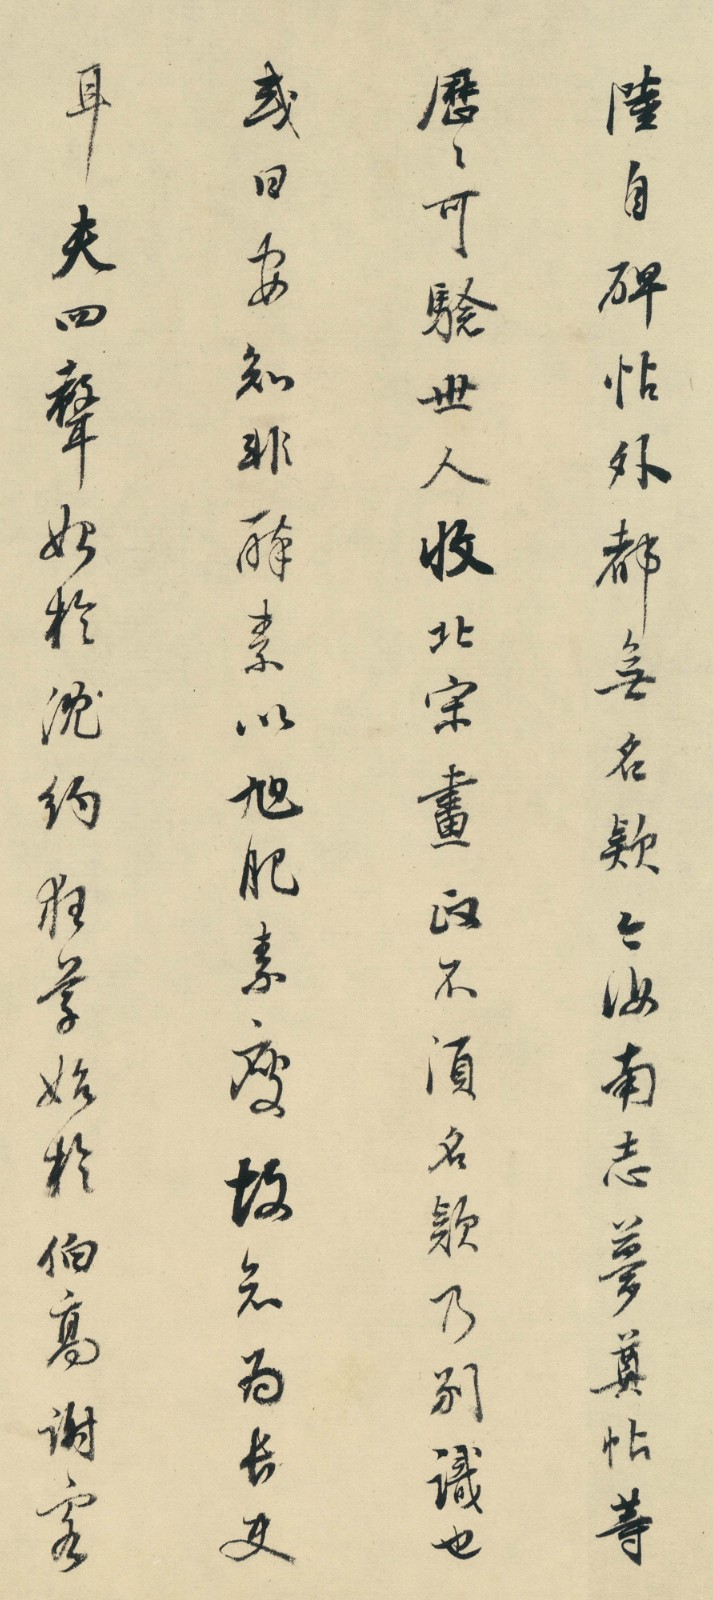 陸自碑帖外都無名款今汝南志夢奠帖等
歷〻可驗世人收北宋畫政不須名款乃別識也
或曰安知非醉素以旭肥素瘦故為長史
耳夫四聲始於沈約狂草始於伯高謝客